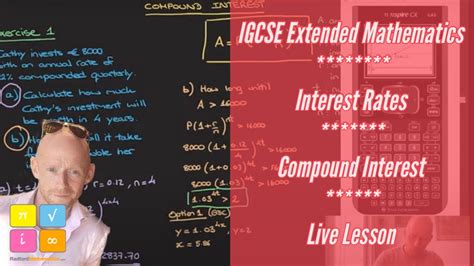 COMPOUND INTEREST
Exercise 1
Cathy invests € 8000
an annual rate of
12% compounded quarterly.
a) Calculate how much
Cathy's investment will
be worth in 4 years.
b) How long will it take
double her
r = 0.12, n = 4
A =
b) How long until
A > 16000
P(1+r/n)^nt > 16000
8000(1+0.12/4)^4t > 16000
8000(1.03)^4t > 16000
1.03^4t > 2
Option 1 (GDC)
y = 1.03^4x
x = 5.86
2837.70
π √
i ∞
RadfordMathematics.com
IGCSE Extended Mathematics
********
Interest Rates
*******
Compound Interest
******
Live Lesson